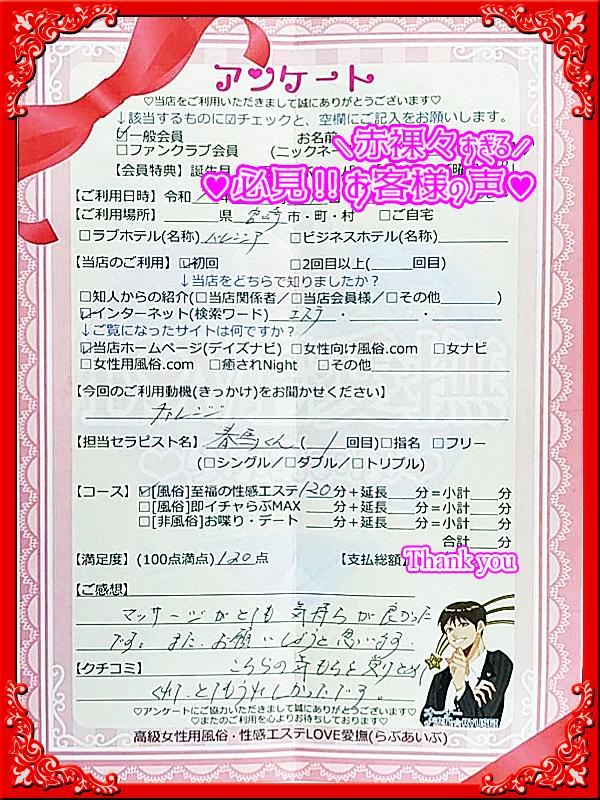 アンケート
♡当店をご利用いただきまして誠にありがとうございます♡
↓該当するものに☑チェックと、空欄にご記入をお願いします。
☑一般会員 お名前
□ファンクラブ会員 (ニックネー
\赤裸々すぎる/
【会員特典】誕生月
♥必見!!お客様の声♥
【ご利用日時】令和 年
【ご利用場所】 県 宮崎 市・町・村 □ご自宅
□ラブホテル(名称) □ビジネスホテル(名称)
【当店のご利用】☑初回 □2回目以上( 回目)
↓当店をどちらで知りましたか?
□知人からの紹介(□当店関係者/□当店会員様/□その他 )
☑インターネット(検索ワード) エステ ・ ・
↓ご覧になったサイトは何ですか?
☑当店ホームページ(デイズナビ) □女性向け風俗.com □女ナビ
□女性用風俗.com □癒されNight □その他
【今回のご利用動機(きっかけ)をお聞かせください】
チャレンジ
【担当セラピスト名】 春馬くん ( 1 回目)□指名 □フリー
(□シングル/□ダブル/□トリプル)
【コース】☑[風俗]至福の性感エステ 120 分+延長 分=小計 分
□[風俗]即イチャらぶMAX 分+延長 分=小計 分
□[非風俗]お喋り・デート 分+延長 分=小計 分
合計 分
【満足度】(100点満点) 120 点 【支払総額】
Thank you
【ご感想】
マッサージがとても 気持ちが良かった
です。また、お願いしようと思います。
【クチコミ】 こちらの気もちを受けとめ
くれて、とてもうれしかったです。
♡アンケートにご協力いただきまして誠にありがとうございます♡
♡またのご利用を心よりお待ちしております♡
高級女性用風俗・性感エステLOVE愛撫(らぶあいぶ)